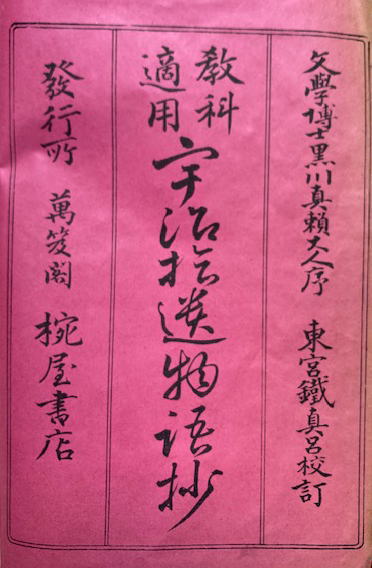 文學博士黒川真頼大人序 東宮鐵真呂校訂
教科適用 宇治拾遺物語抄
發行所 萬笈閣 椀屋書店